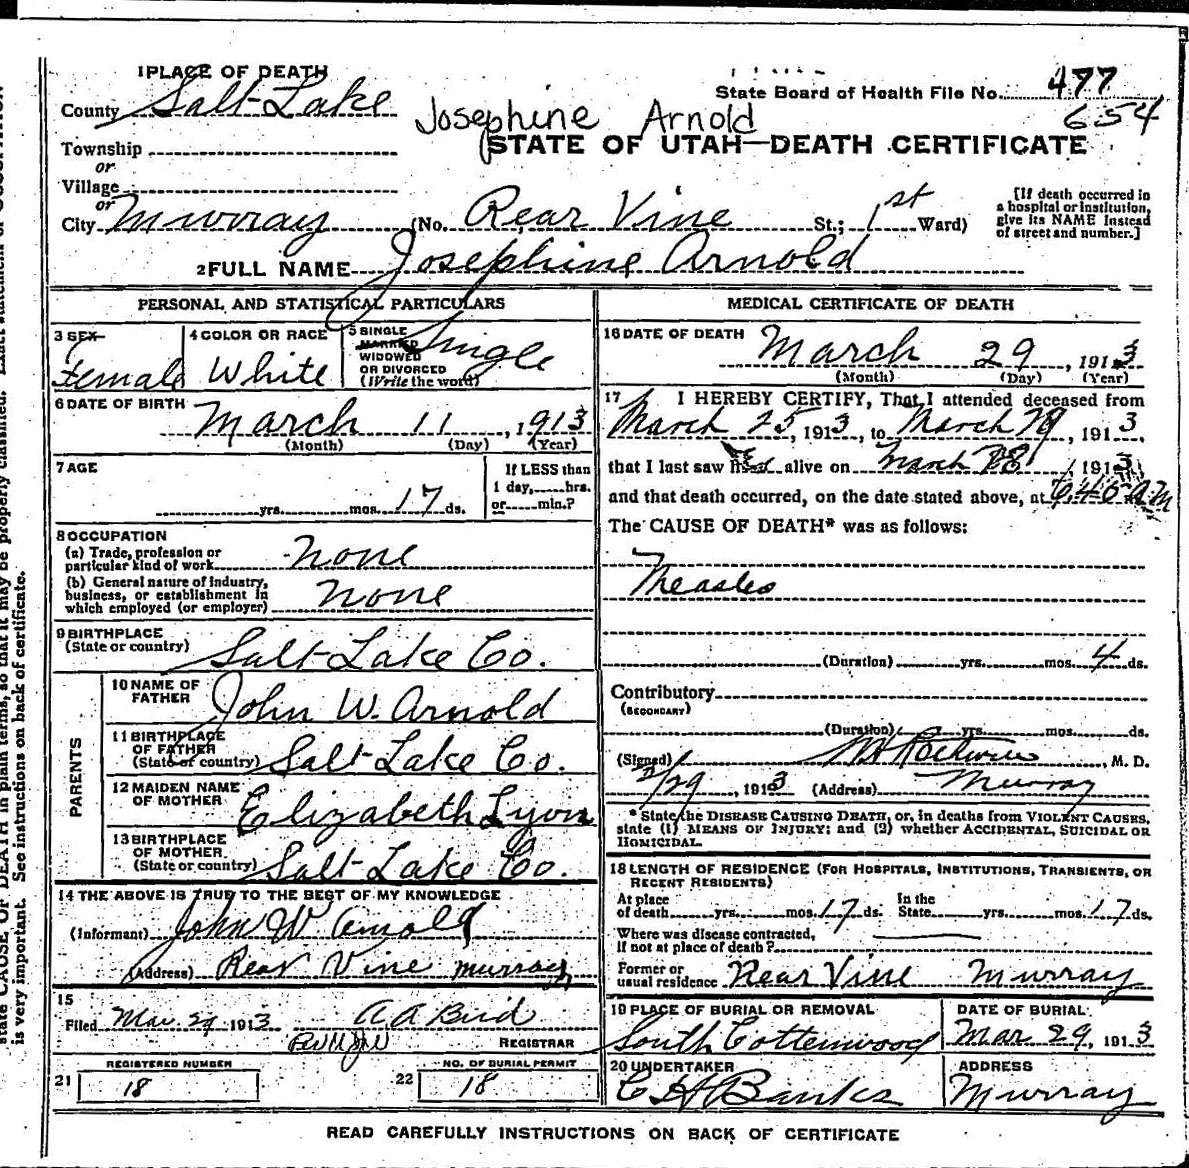 1 PLACE OF DEATH
County Salt Lake
State Board of Health File No. 477
654
Josephine Arnold
Township
STATE OF UTAH—DEATH CERTIFICATE
or
Village
or
City Murray (No. Rear Vine St.; 1st Ward)
[If death occurred in
a hospital or institution,
give its NAME instead
of street and number.]
2 FULL NAME Josephine Arnold
PERSONAL AND STATISTICAL PARTICULARS
3 SEX
Female
4 COLOR OR RACE
White
5 SINGLE
MARRIED
WIDOWED
OR DIVORCED
(Write the word)
Single
6 DATE OF BIRTH March 11, 1913
(Month) (Day) (Year)
7 AGE
yrs. mos. 17 ds.
If LESS than
1 day, hrs.
or min.?
8 OCCUPATION
(a) Trade, profession or
particular kind of work None
(b) General nature of industry,
business, or establishment in
which employed (or employer) None
9 BIRTHPLACE
(State or country) Salt Lake Co.
PARENTS
10 NAME OF
FATHER John W. Arnold
11 BIRTHPLACE
OF FATHER
(State or country) Salt Lake Co.
12 MAIDEN NAME
OF MOTHER Elizabeth Lyon
13 BIRTHPLACE
OF MOTHER
(State or country) Salt Lake Co.
14 THE ABOVE IS TRUE TO THE BEST OF MY KNOWLEDGE
(Informant) John W Arnold
(Address) Rear Vine Murray
15
Filed Mar. 29 1913 A A Bird
REGISTRAR
REGISTERED NUMBER
21 18
NO. OF BURIAL PERMIT
22 18
MEDICAL CERTIFICATE OF DEATH
16 DATE OF DEATH March 29, 1913
(Month) (Day) (Year)
17 I HEREBY CERTIFY, That I attended deceased from
March 25, 1913, to March, 1913,
that I last saw alive on March 28, 1913
and that death occurred, on the date stated above, at 6:45 am
The CAUSE OF DEATH* was as follows:
Measles
(Duration) yrs. mos. 4 ds.
Contributory
(SECONDARY)
(Duration) yrs. mos. ds.
(Signed), M. D.
3/29, 1913 (Address) Murray
* State the DISEASE CAUSING DEATH, or, in deaths from VIOLENT CAUSES,
state (1) MEANS OF INJURY; and (2) whether ACCIDENTAL, SUICIDAL OR
HOMICIDAL.
18 LENGTH OF RESIDENCE (FOR HOSPITALS, INSTITUTIONS, TRANSIENTS, OR
RECENT RESIDENTS)
At place
of death yrs. mos. 17 ds.
In the
State yrs. mos. 17 ds.
Where was disease contracted,
if not at place of death?
Former or
usual residence Rear Vine Murray
19 PLACE OF BURIAL OR REMOVAL
South Cottonwood
DATE OF BURIAL
Mar. 29, 1913
20 UNDERTAKER
C H Banks
ADDRESS
Murray
READ CAREFULLY INSTRUCTIONS ON BACK OF CERTIFICATE
state CAUSE OF DEATH in plain terms, so that it may be properly classified.
is very important. See instructions on back of certificate.